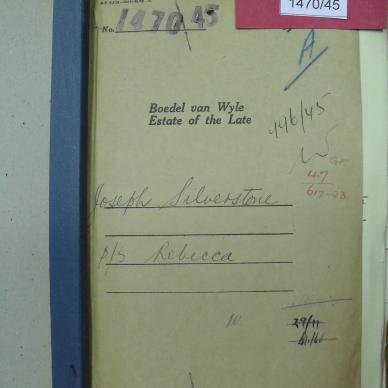 1470/45
No. 1470/45
A
Boedel van Wyle
Estate of the Late
496/45
47
617-23
Joseph Silverstone
p/s Rebecca
29/11